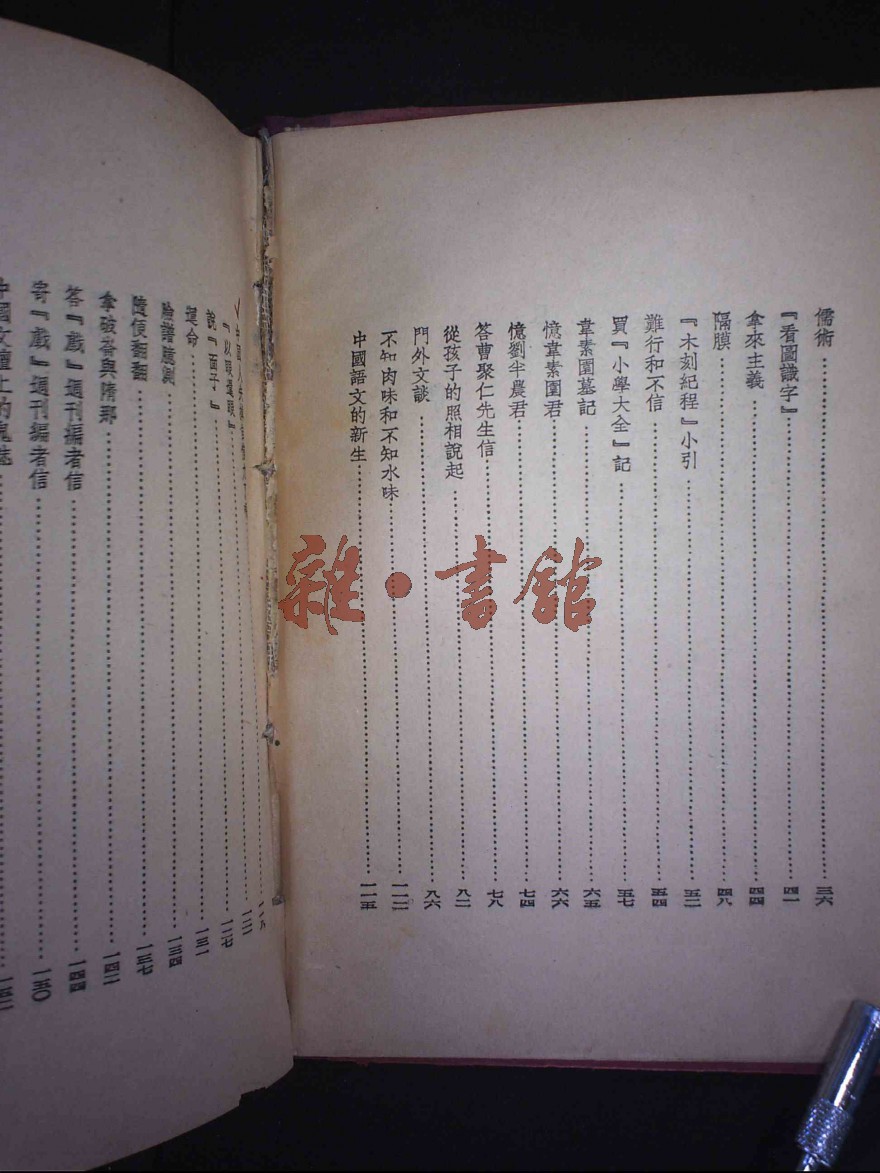 儒術……三六
『看圖識字』……四一
拿來主義……四四
隔膜……四八
『木刻紀程』小引……五二
難行和不信……五四
買『小學大全』記……五七
韋素園墓記……六五
憶韋素園君……六六
憶劉半農君……七四
答曹聚仁先生信……七八
從孩子的照相說起……八二
門外文談……八六
不知肉味和不知水味……一一二
中國語文的新生……一一五
『以眼還眼』……一二一
說『面子』……一二七
運命……一三一
臉譜臆測……一三四
隨便翻翻……一三七
拿破崙與隋那……一四二
答『戲』週刊編者信……一四四
寄『戲』週刊編者信……一五〇
中國文壇上的鬼魅……一五二
雜·書館